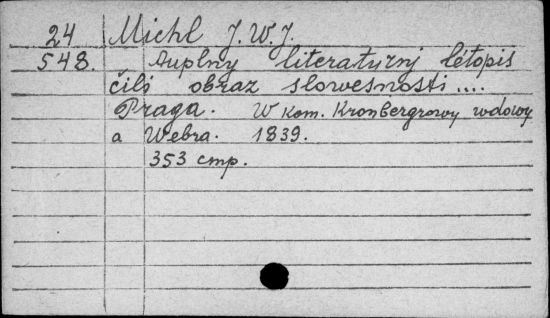 24 Michl J. W. J.
548. Auplny literaturnj létopis
čili obraz slowesnosti....
Praga. W kom. Kronbergrowy wdowy
a Webra. 1839.
353 стр.